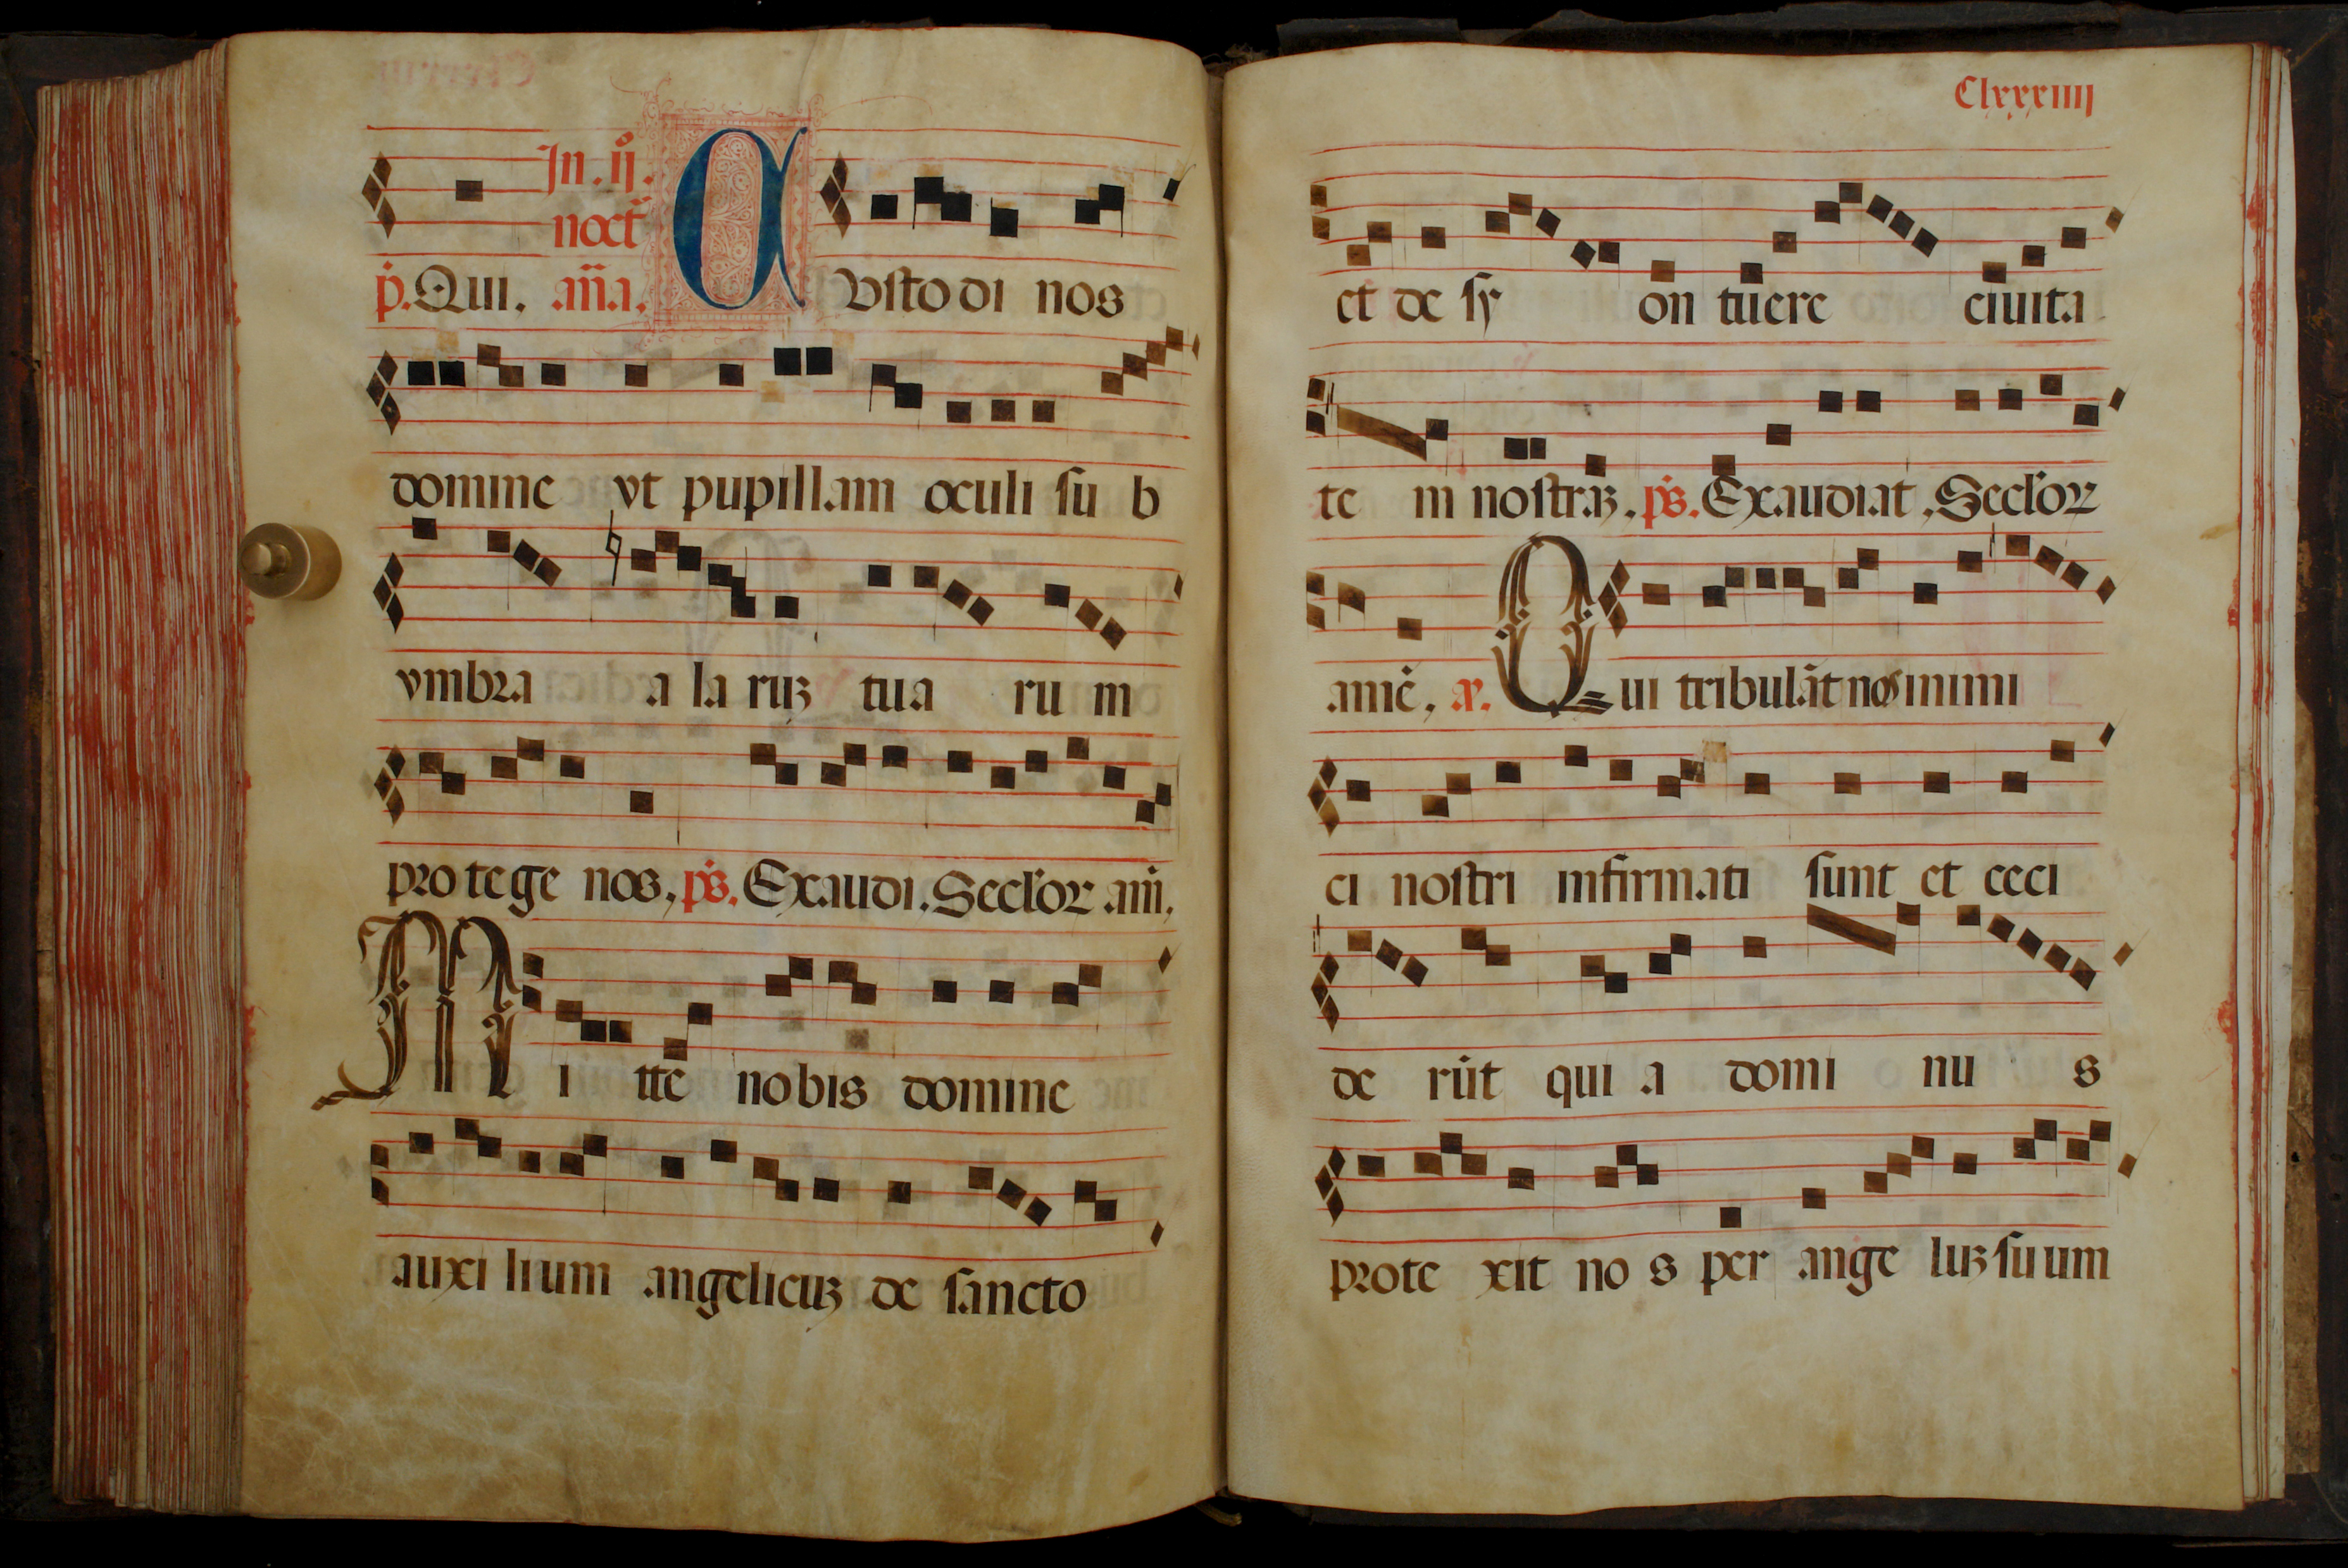 In . ij .
noct̄
p̄. Qui. an̄a. Custodi nos
domine vt pupillam oculi su b
vmbra a la ruꝫ tua ru m
pro te ge nos, ps̄. Exaudi. Seclor am̄.
M i tte nobis domine
auxi lium angelicuꝫ de sancto
Clxxxiiij
et de sy on tuere ciuita
te m nostraꝫ. ps̄. Exaudiat. Seclor
amē, Qui tribulāt nos inimi
ci nostri infirmati sunt et ceci
de rūt qui a domi nu s
prote xit no s per ange luꝫ suum